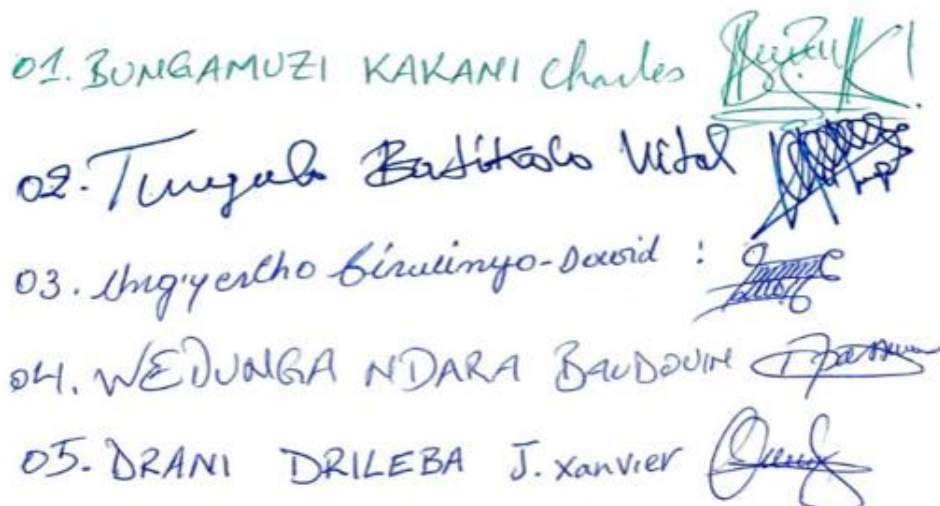 01. BUNGAMUZI KAKANI Charles
02. Tungulo Batitkolo Vital
03. Ung'yertho birulinyo-David :
04. WEDUNGA NDARA BAUDOUIN
05. DRANI DRILEBA J. xanvier